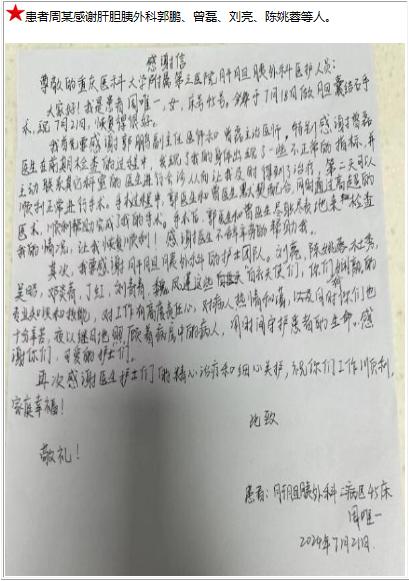 ★患者周某感谢肝胆胰外科郭鹏、曾磊、刘亮、陈姚蓉等人。
感谢信
尊敬的重庆医科大学附属第三医院肝胆胰外科医护人员:
大家好!我是患者周唯一,女,床号45号,今年于7月18日做胆囊结石手
术,现7月21日,恢复得很好。
我首先要感谢郭鹏副主任医师和曾磊主治医师,特别感谢曾磊
医生在前期检查的过程中,发现了我的身体出现了一些不正常的指标,并
主动联系其它科室的医生进行会诊从而让我及时得到了治疗,第二天可以
顺利正常进行手术。手术过程中,郭医生和曾医生默契配合,同时通过高超的
医术,顺利帮助完成了我的手术。手术后,郭医生和曾医生尽职尽责地来检查
我的情况,让我恢复顺利!感谢医生不辞辛劳的帮助我。
其次,我要感谢肝胆胰外科的护士团队。刘亮,陈姚蓉,
吴昭,邓炎青,丁虹,刘青青,魏凤莲这些白衣天使们,你们娴熟的
专业知识和技能,对工作的高度责任心,对病人热情和蔼,以及同时你们也
十分辛苦,夜以继日地照顾着病房中的病人,时时守护患者的生命。感
谢你们,可爱的护士们。
再次感谢医生护士们的精心治疗和细心关护,祝你们工作顺利,
家庭幸福!
此致
敬礼!
患者:肝胆胰外科二病区45床
周唯一
2024年7月21日.